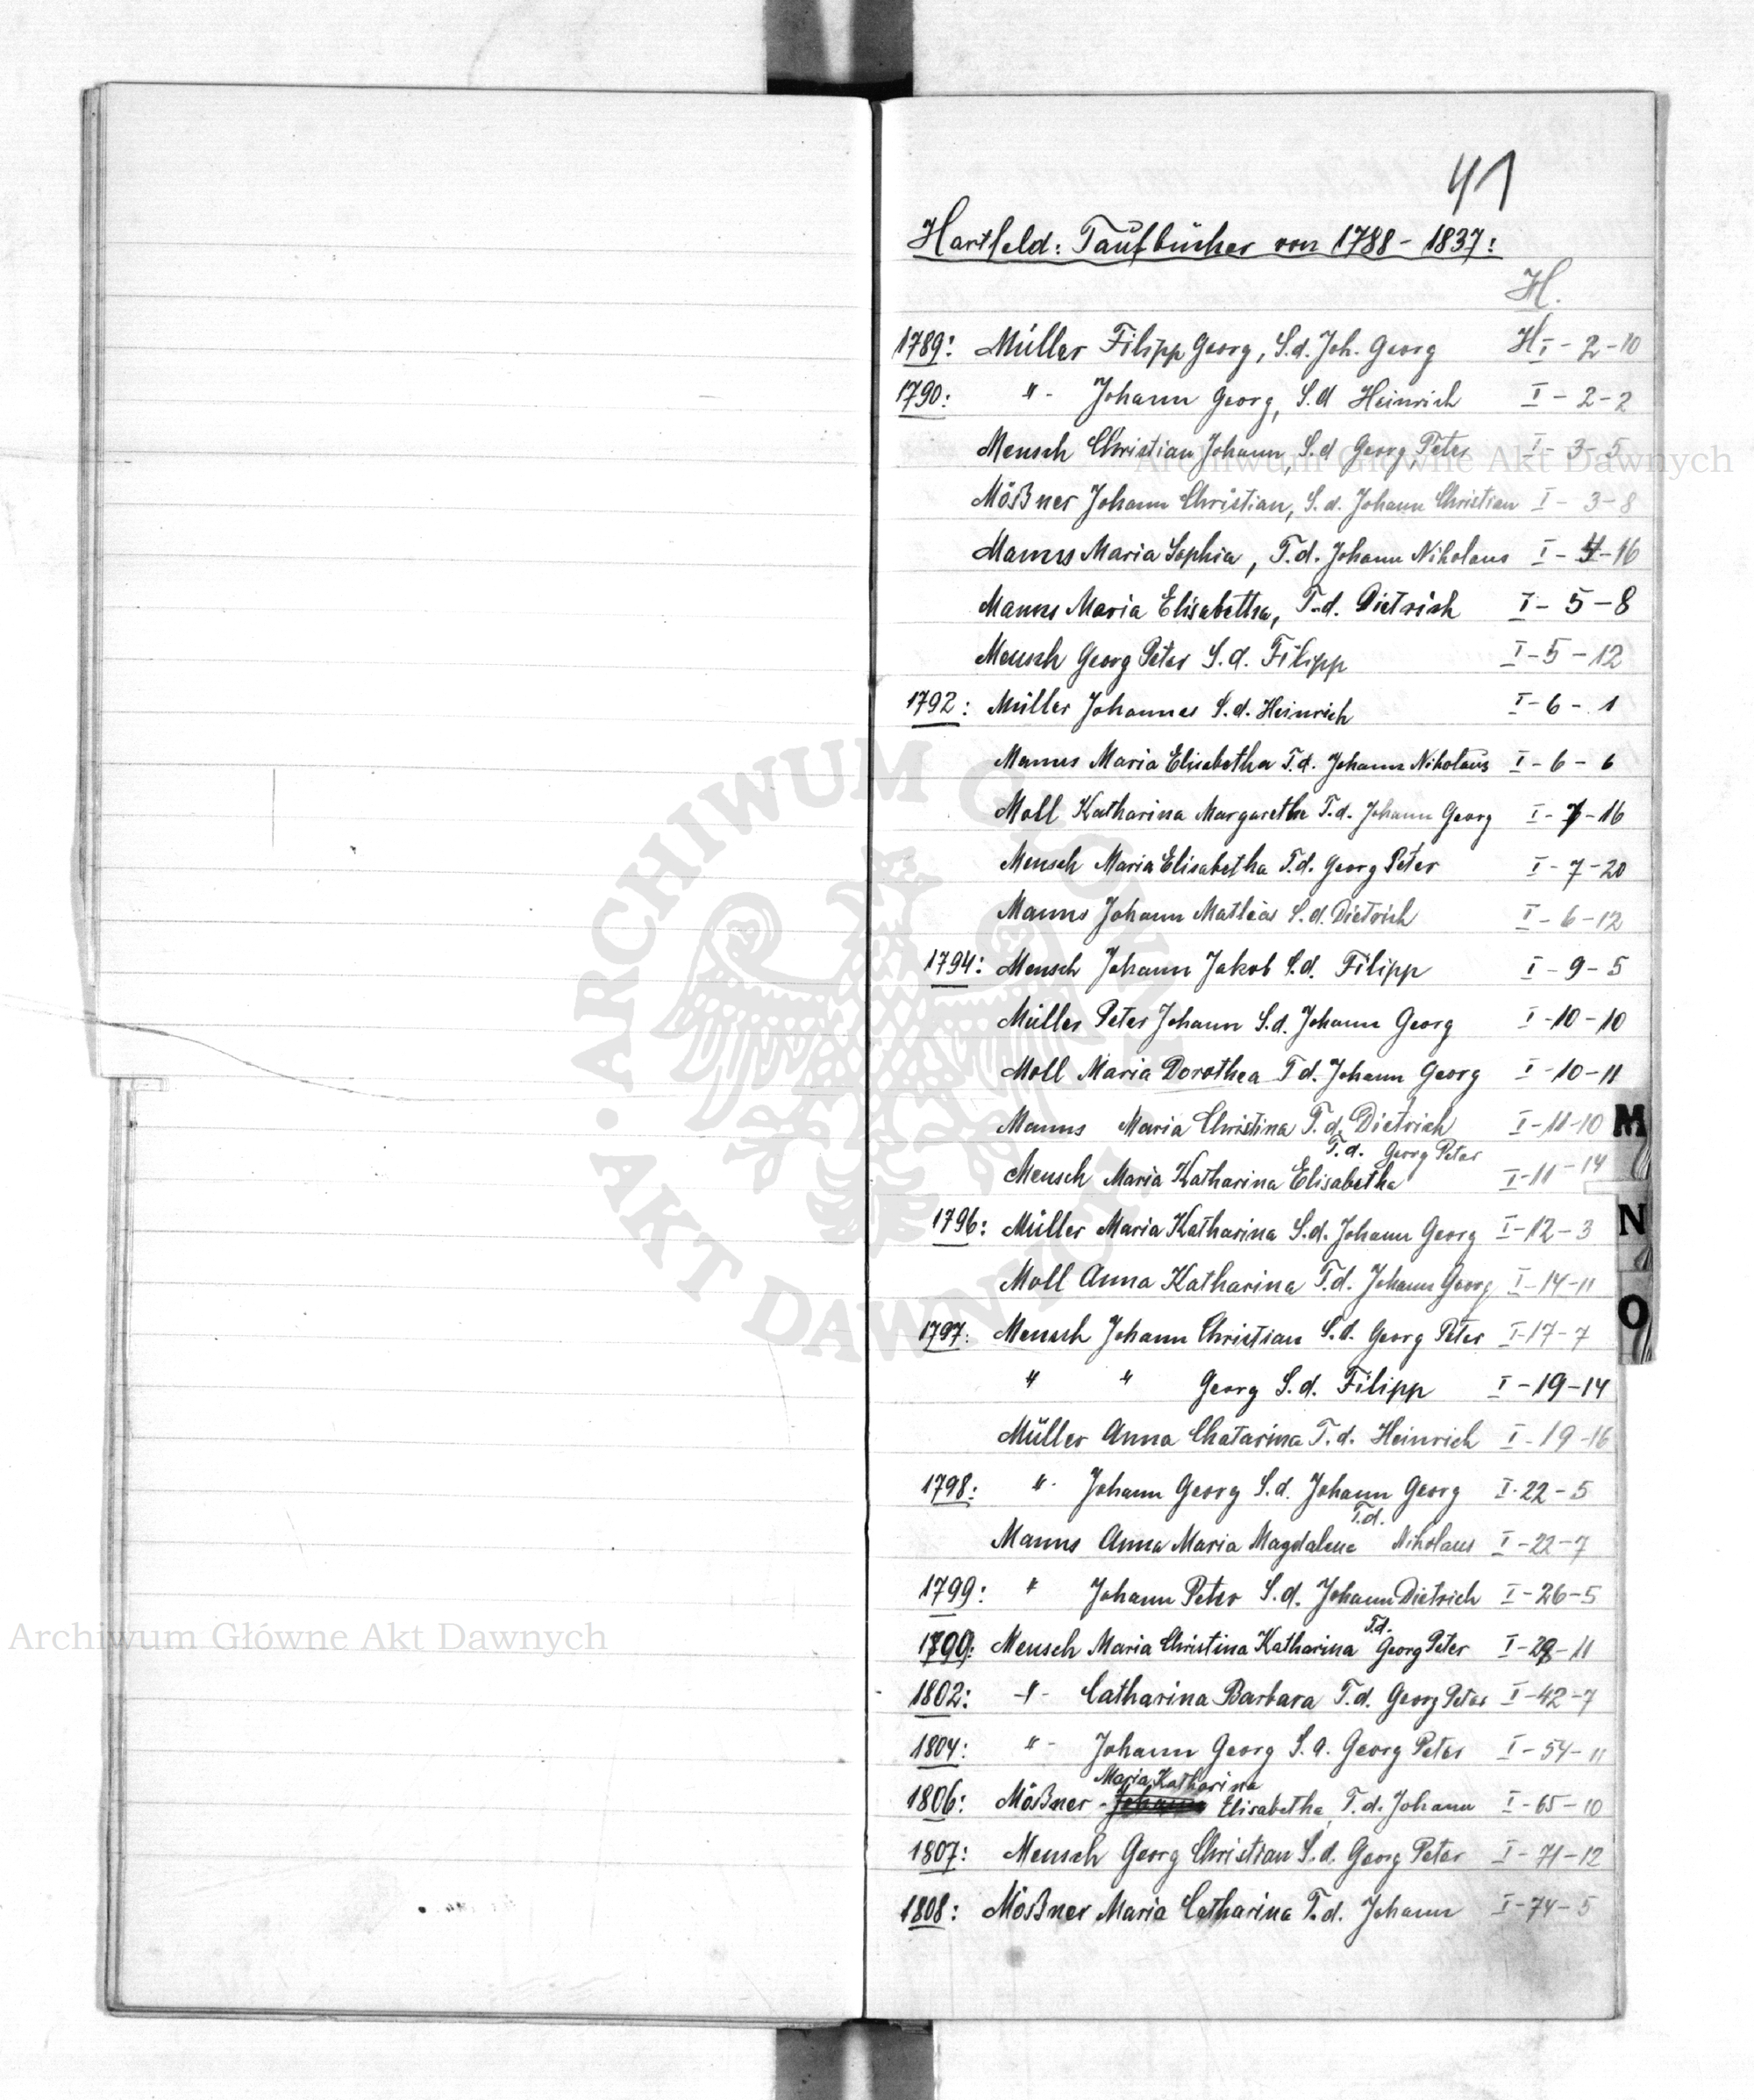 41
Hartfeld: Taufbücher von 1788 - 1837:
H.
1789: Müller Filipp Georg, S.d. Joh. Georg H I - 2 - 10
1790: " - Johann Georg, S.d Heinrich I - 2 - 2
Mensch Christian Johann, S.d Georg Peter I - 3 - 5
Mößner Johann Christian, S.d. Johann Christian I - 3 - 8
Manns Maria Sophia, T.d. Johann Nikolaus I - 4 - 16
Manns Maria Elisabetha, T.d. Dietrich I - 5 - 8
Mensch Georg Peter S.d. Filipp I - 5 - 12
1792: Müller Johannes S.d. Heinrich I - 6 - 1
Manns Maria Elisabetha T.d. Johann Nikolaus I - 6 - 6
Moll Katharina Margaretha T.d. Johann Georg I - 7 - 16
Mensch Maria Elisabetha T.d. Georg Peter I - 7 - 20
Manns Johann Matheas S.d. Dietrich I - 6 - 12
1794: Mensch Johann Jakob S.d. Filipp I - 9 - 5
Müller Peter Johann S.d. Johann Georg I - 10 - 10
Moll Maria Dorothea T d. Johann Georg I - 10 - 11
Manns Maria Christina T.d. Dietrich I - 11 - 10
T.d. Georg Peter
Mensch Maria Katharina Elisabetha I - 11 - 14
1796: Müller Maria Katharina S.d. Johann Georg I - 12 - 3
Moll Anna Katharina T.d. Johann Georg I - 14 - 11
1797: Mensch Johann Christian S.d. Georg Peter I - 17 - 7
" " Georg S.d. Filipp I - 19 - 14
Müller Anna Chatarina T.d. Heinrich I - 19 - 16
1798: " - Johann Georg S.d. Johann Georg I - 22 - 5
T.d.
Manns Anna Maria Magdalena Nikolaus I - 22 - 7
1799: " Johann Peter S.d. Johann Dietrich I - 26 - 5
T.d.
1799: Mensch Maria Christina Katharina Georg Peter I - 29 - 11
1802: - " - Catharina Barbara T.d. Georg Peter I - 42 - 7
1804: " - Johann Georg S.d. Georg Peter I - 54 - 11
Maria Katharina
1806: Mößner - Johann Elisabetha, T.d. Johann I - 65 - 10
1807: Mensch Georg Christian S.d. Georg Peter I - 71 - 12
1808: Mößner Maria Catharina T.d. Johann I - 74 - 5
M
N
O
Archiwum Główne Akt Dawnych
Archiwum Główne Akt Dawnych
ARCHIWUM GŁÓWNE · AKT DAWNYCH ·